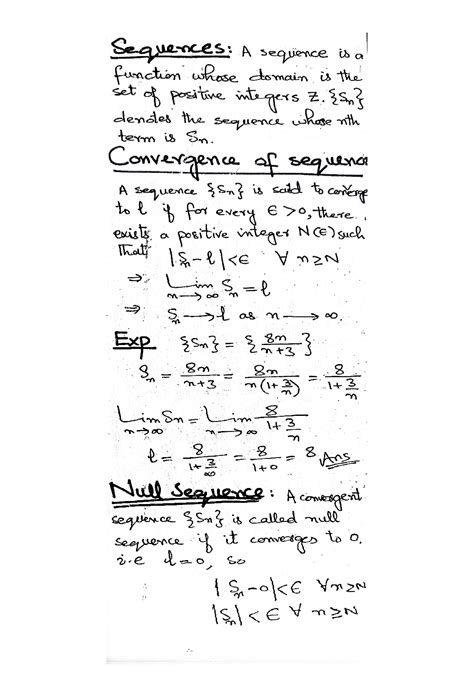 Sequences: A sequence is a
function whose domain is the
set of positive integers Z. {Sn}
denotes the sequence whose nth
term is Sn.
Convergence of sequence
A sequence {Sn} is said to converge
to l if for every ϵ>0, there
exists a positive integer N(ϵ) such
that
|Sn-l|<ϵ ∀ n≥N
⇒ Lim n→∞ Sn = l
⇒ Sn → l as n → ∞.
Exp {Sn} = { 8n/n+3 }
Sn = 8n/n+3 = 8n/n(1+3/n) = 8/1+3/n
Lim n→∞ Sn = Lim n→∞ 8/1+3/n
l = 8/1+3/∞ = 8/1+0 = 8 Ans
Null Sequence: A convergent
sequence {Sn} is called null
sequence if it converges to 0.
i.e l=0, so
|Sn-0|<ϵ ∀n≥N
|Sn|<ϵ ∀ n≥N